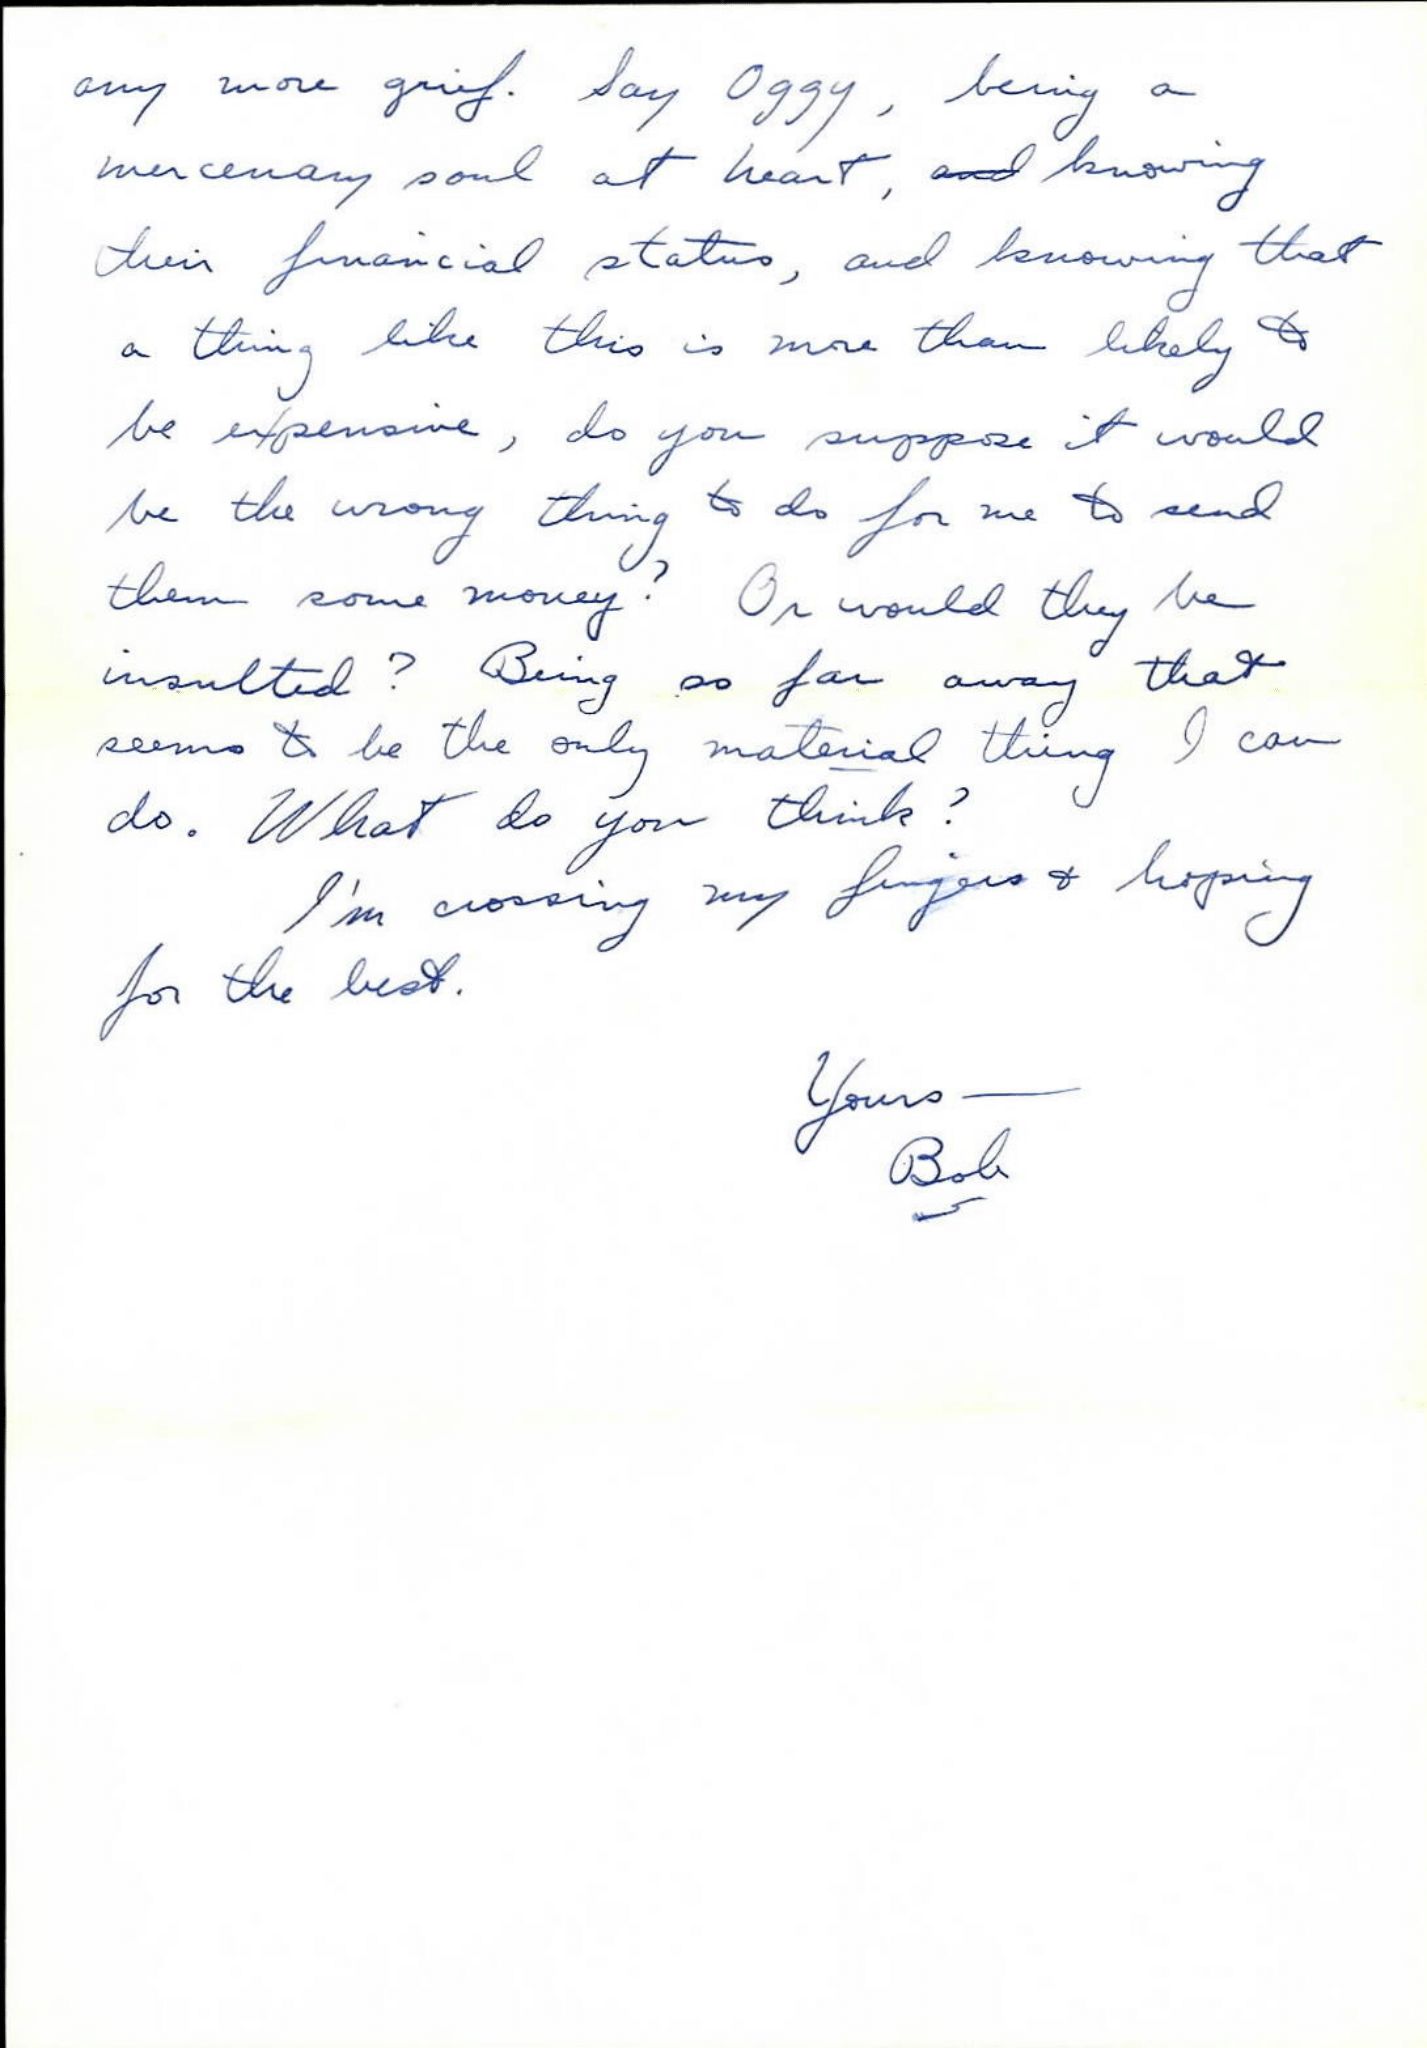 any more grief. Say Oggy, being a
mercenary soul at heart, and knowing
their financial status, and knowing that
a thing like this is more than likely to
be expensive, do you suppose it would
be the wrong thing to do for me to send
them some money? Or would they be
insulted? Being so far away that
seems to be the only material thing I can
do. What do you think?
I'm crossing my fingers & hoping
for the best.
Yours—
Bob